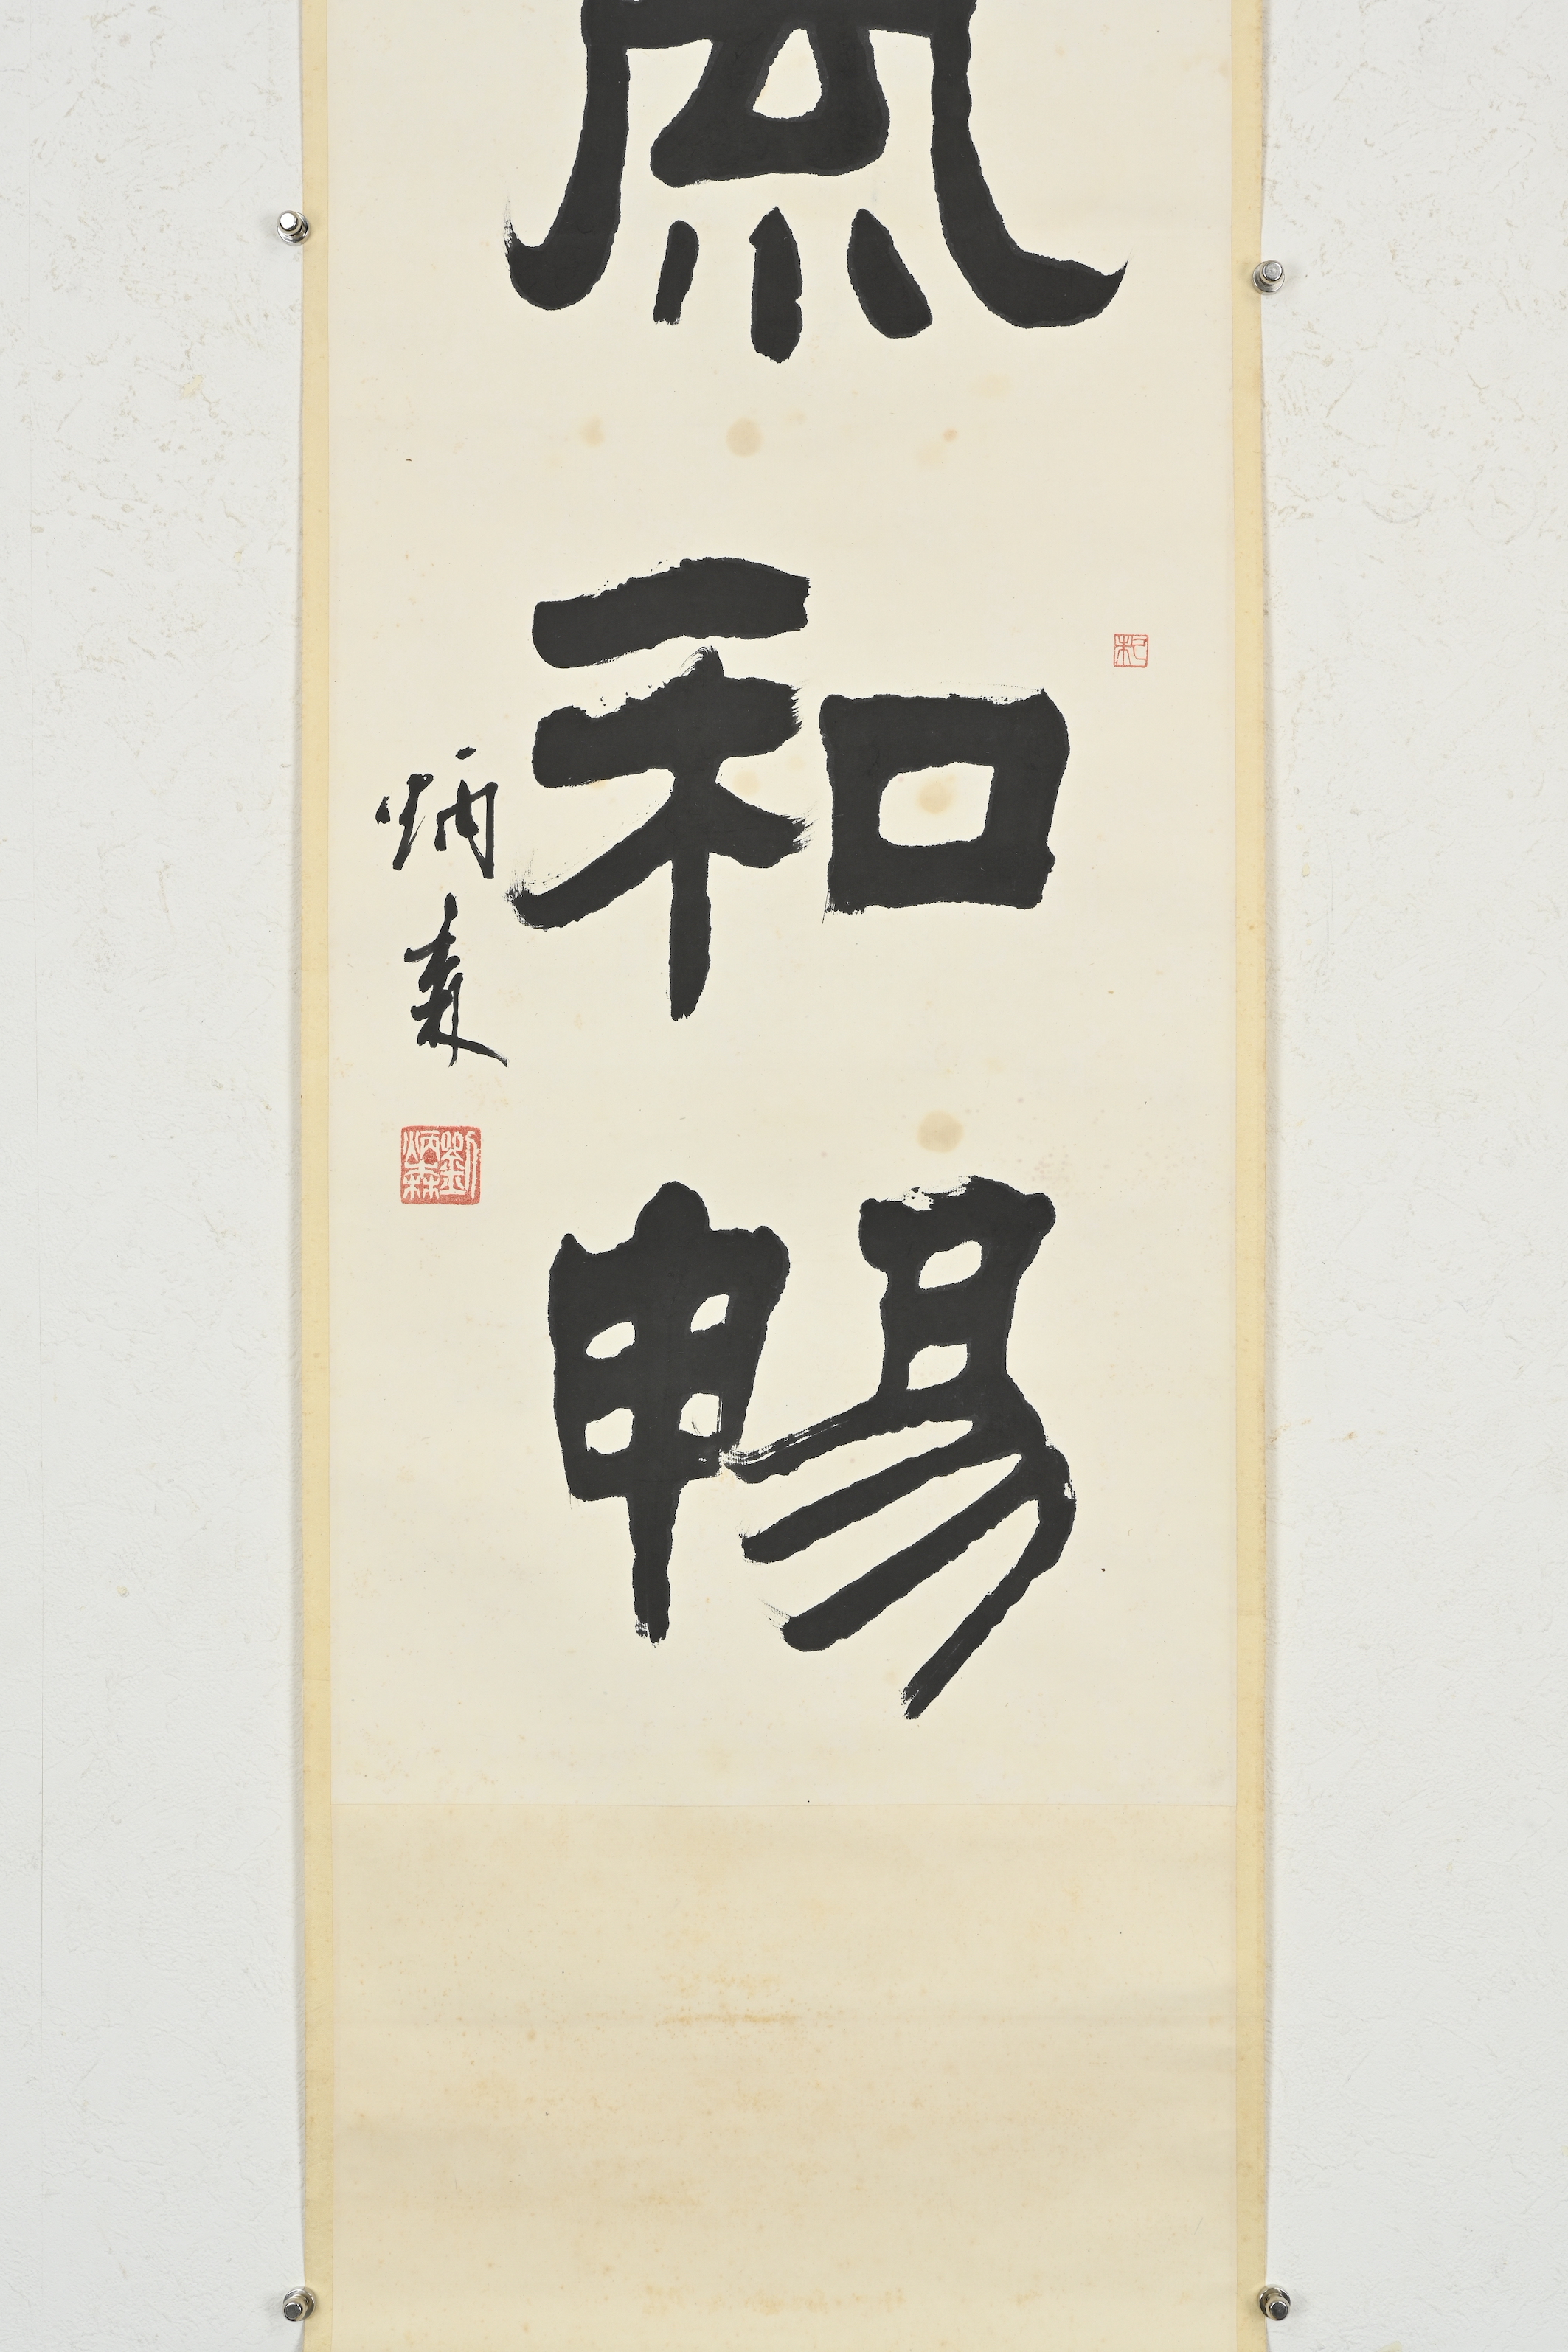 風和暢
炳森
劉炳森